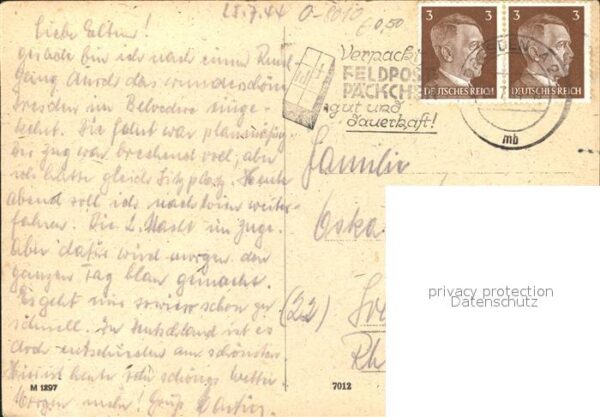 25.7.44 0-8010
€ 0,50
Liebe Eltern!
gerade bin ich nach einem Rund
gang durch das wunderschöne
Dresden im Belvedere einge-
kehrt. Die Fahrt war planmäßig
der Zug war brechend voll, aber
ich hatte gleich Sitzplatz. Heute
abend soll ich nach weiter-
fahren. Die 2. Nacht im Zuge.
Aber dafür wird morgen den
ganzen Tag blau gemacht.
Es geht mir sowieso schon zu
schnell. In Deutschland ist es
doch entschieden am schönsten
Hier ist heute sehr schönes Wetter
Morgen mehr! Gruß
M 1297
Verpackt
FELDPOST
PÄCKCHE
gut und
dauerhaft!
3 3 3 3
DEUTSCHES REICH DEUTSCHES REICH
mb
Familie
Oska
(22)
Rh
7012
privacy protection
Datenschutz